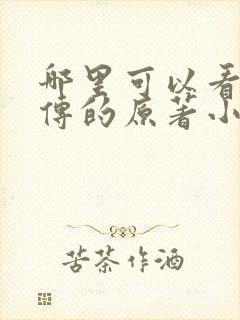 哪里可以看
傅的原著小
苦茶作酒